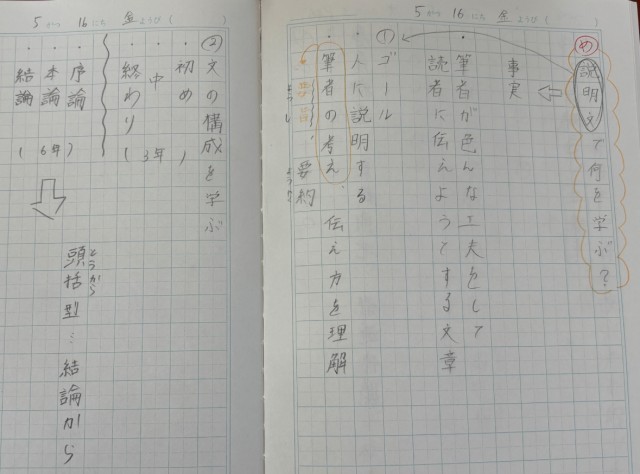 5がつ 16にち 金ようび( )
め 説明文で何を学ぶ?
事実
・筆者が色んな工夫をして
読者に伝えようとする文章
① ゴール
・人に説明する
・筆者の考え、伝え方を理解
要旨、要約
ようし ようやく
5がつ 16にち 金ようび( )
② 文の構成を学ぶ
・初め
中
終わり
(3年)
・序論
・本論
・結論
(6年)
頭括型…結論から
とうかつ